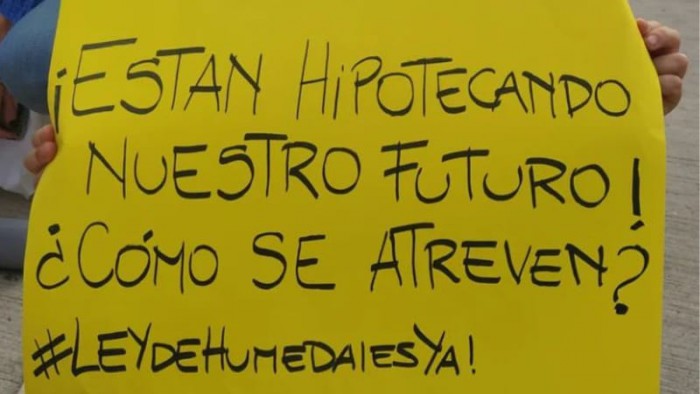 ¡ESTAN HIPOTECANDO
NUESTRO FUTURO!
¿CÓMO SE ATREVEN?
#LEYDEHUMEDALESYA!